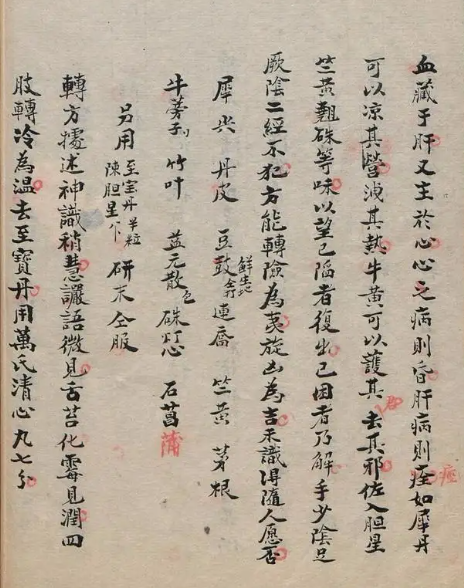 血藏于肝又主於心心之病則昏肝病則痙如犀丹
痙
可以凉其營洩其熱牛黄可以護其君去其邪佐入胆星
竺黄硃等味以望已陷者復出已困者乃解手少陰足
厥陰二經不犯方能轉險為夷旋凶為吉未識得隨人愿否
犀尖 丹皮 豆豉 鮮生地 合打 連喬 竺黄 茅根
牛蒡子 竹叶 益元散包 硃灯心 石菖蒲
另用 至宝丹半粒 陳胆星 研末仝服
轉方據述神識稍慧讝語微見舌苔化霉見潤四
肢轉冷為温去至寶丹用萬氏清心丸七分